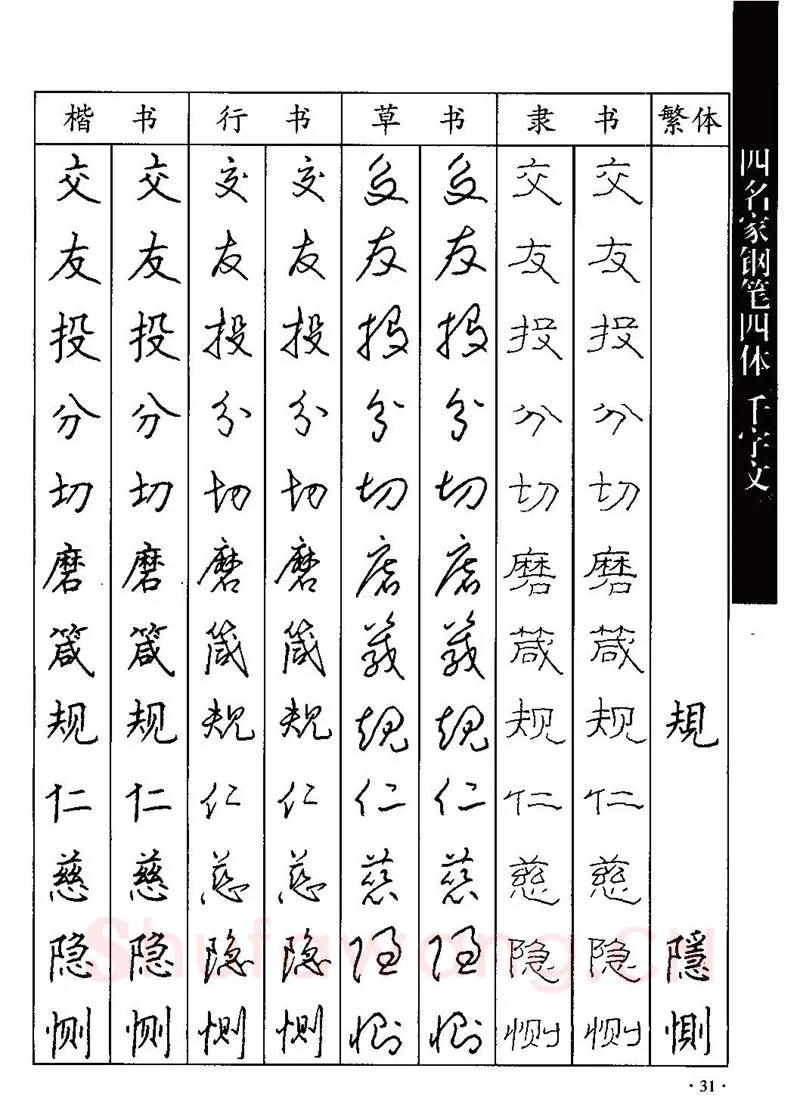 楷书 行书 草书 隶书 繁体
交 交 交 交 交 交 交 交
友 友 友 友 友 友 友 友
投 投 投 投 投 投 投 投
分 分 分 分 分 分 分 分
切 切 切 切 切 切 切 切
磨 磨 磨 磨 磨 磨 磨 磨
箴 箴 箴 箴 箴 箴 箴 箴
规 规 规 规 规 规 规 规 規
仁 仁 仁 仁 仁 仁 仁 仁
慈 慈 慈 慈 慈 慈 慈 慈
隐 隐 隐 隐 隐 隐 隐 隐 隱
恻 恻 恻 恻 恻 恻 恻 恻 惻
四名家钢笔四体 千字文
Shufawang.CN
·31·